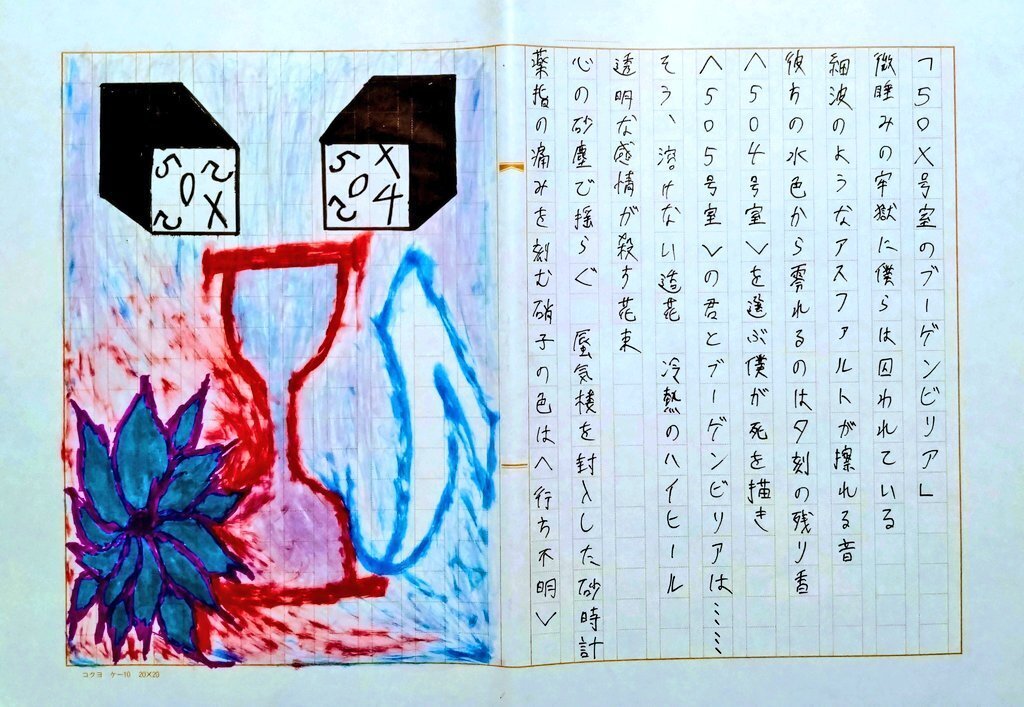 「50X号室のブーゲンビリア」
微睡みの牢獄に僕らは囚われている
細波のようなアスファルトが擦れる音
彼方の水色から零れるのは夕刻の残り香
〈504号室〉を選ぶ僕が死を描き
〈505号室〉の君とブーゲンビリアは……
そう、溶けない造花　冷熱のハイヒール
透明な感情が殺す花束
心の砂塵で揺らぐ　蜃気楼を封入した砂時計
薬指の痛みを刻む硝子の色は〈行方不明〉
5 2
0
2 X
5 X
0
2 4
コクヨ ケー10 20×20